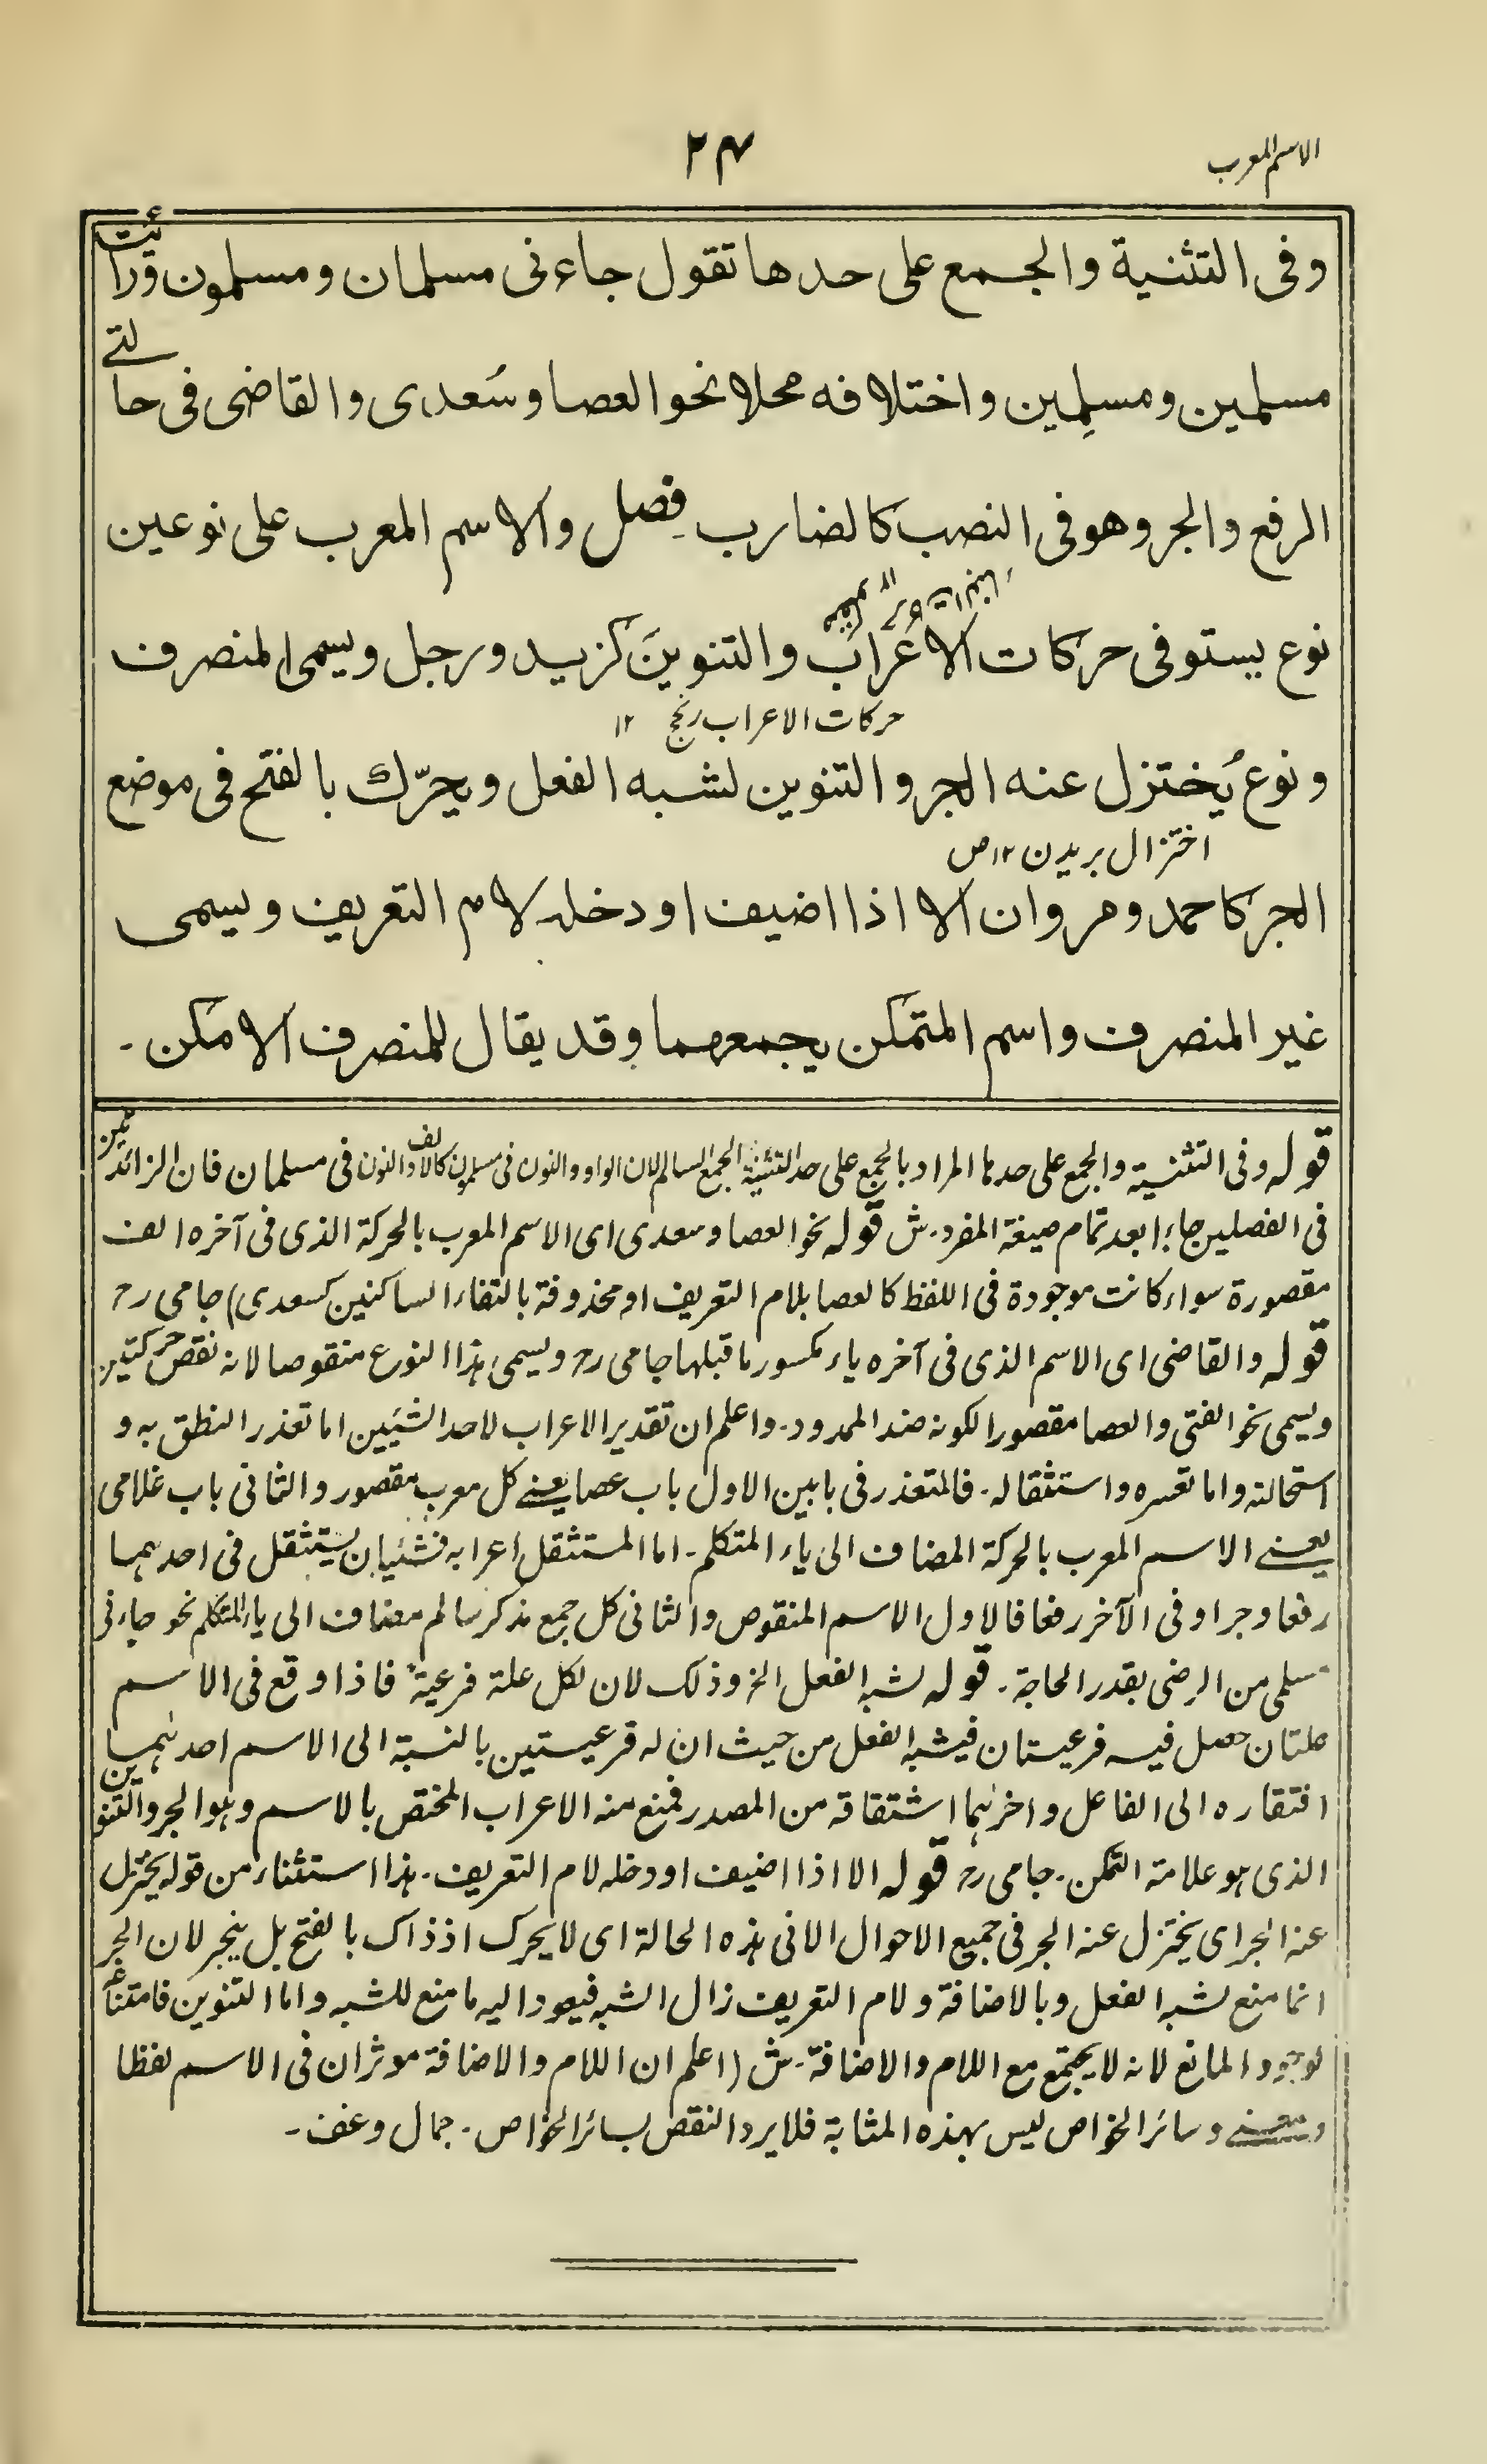 الاسم المعرب
٢٤
وفى التثنية والجمع على حدها تقول جاءنى مسلمان ومسلمون ورأيت
مسلمين ومسلِمين واختلافه محلا نحو العصا وسُعدى والقاضى فى حالتى
الرفع والجر وهو فى النصب كالضارب فصل والاسم المعرب على نوعين
نوع يستوفى حركات الاعراب والتنوين كزيد ورجل ويسمى المنصرف
حركات الاعراب رنج ١٢
ونوع يُختزل عنه الجر والتنوين لشبه الفعل ويحرّك بالفتح فى موضع
اختزال بريدن ١٢ ص
الجر كاحمد ومروان الا اذا اضيف او دخله لام التعريف ويسمى
غير المنصرف واسم المتمكن يجمعهما وقد يقال للمنصرف الامكن-
قوله وفى التثنية والجمع على حدها المراد بالجمع على حد التثنية الجمع السالم لان الواو والنون فى مسلمون كالالف والنون فى مسلمان فان الزائدتين
فى الفصلين جاءا بعد تمام صيغة المفرد. ش قوله نحو العصا وسعدى اى الاسم المعرب بالحركة الذى فى آخره الف
مقصورة سواء كانت موجودة فى اللفظ كالعصا بلام التعريف او محذوفة بالتقاء الساكنين كسعدى) جامى رح
قوله والقاضى اى الاسم الذى فى آخره ياء مكسور ما قبلها جامى رح ويسمى هذا النوع منقوصا لانه نقص حركتين
ويسمى نحو الفتى والعصا مقصورا لكونه ضد الممدود. واعلم ان تقدير الاعراب لاحد الشيئين اما تعذر النطق به و
استحالته واما تعسره واستثقاله. فالمتعذر فى بابين الاول باب عصا يعنے كل معرب مقصور والثانى باب غلامى
يعنے الاسم المعرب بالحركة المضاف الى ياء المتكلم. اما المستثقل اعرابه فشيئان يستثقل فى احدهما
رفعا وجرا وفى الآخر رفعا فالاول الاسم المنقوص والثانى كل جمع مذكر سالم مضاف الى ياء المتكلم نحو جاءنى
مسلمى من الرضى بقدر الحاجة. قوله لشبه الفعل الخ وذلك لان لكل علة فرعية فاذا وقع فى الاسم
علتان حصل فيه فرعيتان فيشبه الفعل من حيث ان له فرعيتين بالنسبة الى الاسم احدهما
افتقاره الى الفاعل واخرىهما اشتقاقه من المصدر فمنع منه الاعراب المختص بالاسم وهو الجر والتنوين
الذى هو علامة التمكن. جامى رح قوله الا اذا اضيف او دخله لام التعريف. هذا استثناء من قوله يختزل
عنه الجر اى يختزل عنه الجر فى جميع الاحوال الا فى هذه الحالة اى لا يحرك اذ ذاك بالفتح بل ينجر لان الجر
انما منع لشبه الفعل وبالاضافة ولام التعريف زال الشبه فيعود اليه ما منع للشبه واما التنوين فامتناعه
لوجود المانع لانه لا يجتمع مع اللام والاضافة. ش (اعلم ان اللام والاضافة موثران فى الاسم لفظا
ومعنے وسائر الخواص ليس بهذه المثابة فلا يرد النقص بسائر الخواص. جمال وعف-